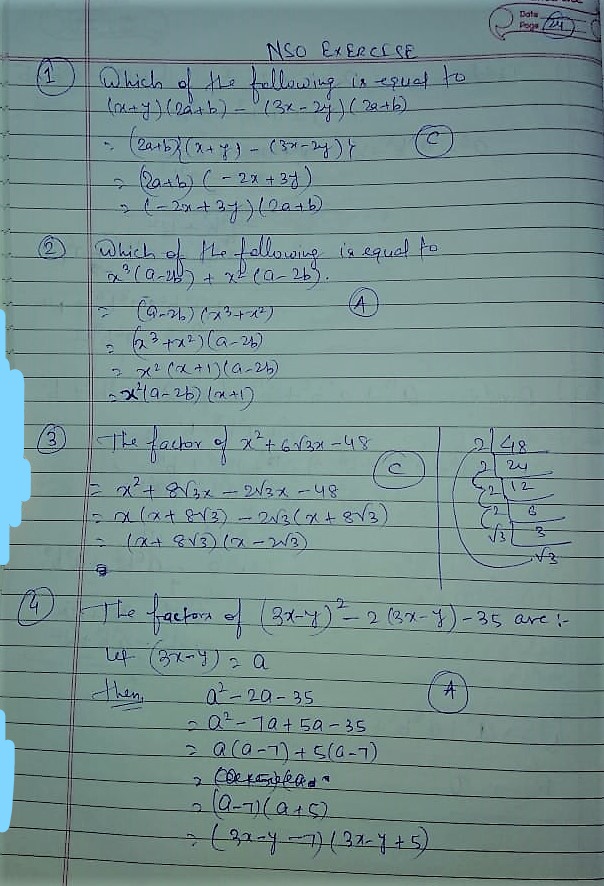 Date
Page 24
NSO EXERCISE
① Which of the following is equal to
(x+y)(2a+b) - (3x-2y)(2a+b)
= (2a+b){(x+y) - (3x-2y)} C
= (2a+b)(-2x+3y)
= (-2x+3y)(2a+b)
② Which of the following is equal to
x³(a-2b) + x²(a-2b).
= (a-2b)(x³+x²) A
= (x³+x²)(a-2b)
= x²(x+1)(a-2b)
= x²(a-2b)(x+1)
③ The factor of x²+6√3x-48
C
= x²+8√3x-2√3x-48
= x(x+8√3)-2√3(x+8√3)
= (x+8√3)(x-2√3)
2 | 48
2 | 24
2 | 12
2 | 6
√3 | 3
√3
④ The factors of (3x-y)²-2(3x-y)-35 are :-
Let (3x-y) = a
then, a²-2a-35 A
= a²-7a+5a-35
= a(a-7)+5(a-7)
= (a-7)(a+5)
= (3x-y-7)(3x-y+5)